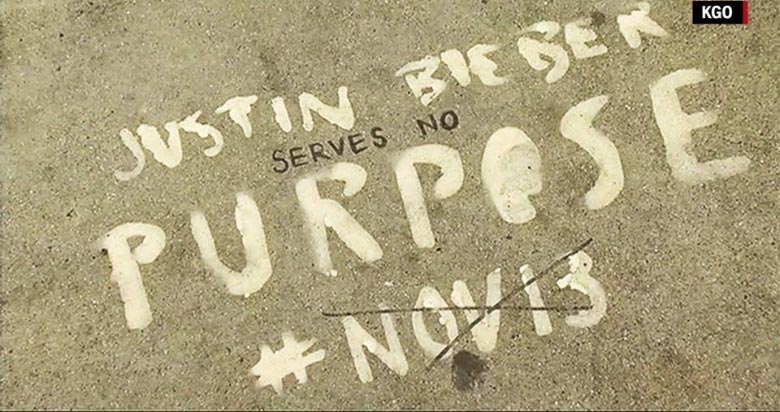 KGO
JUSTIN BIEBER
SERVES NO
PURPOSE
#NOV13